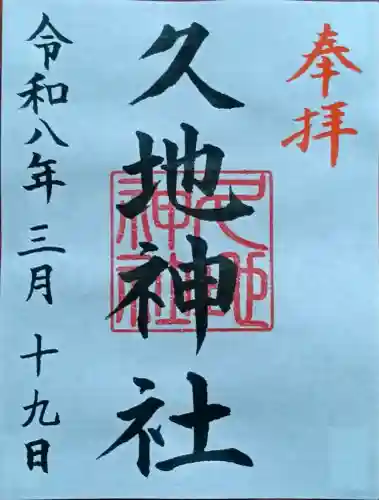 奉拝
久地神社
久地神社
令和八年三月十九日